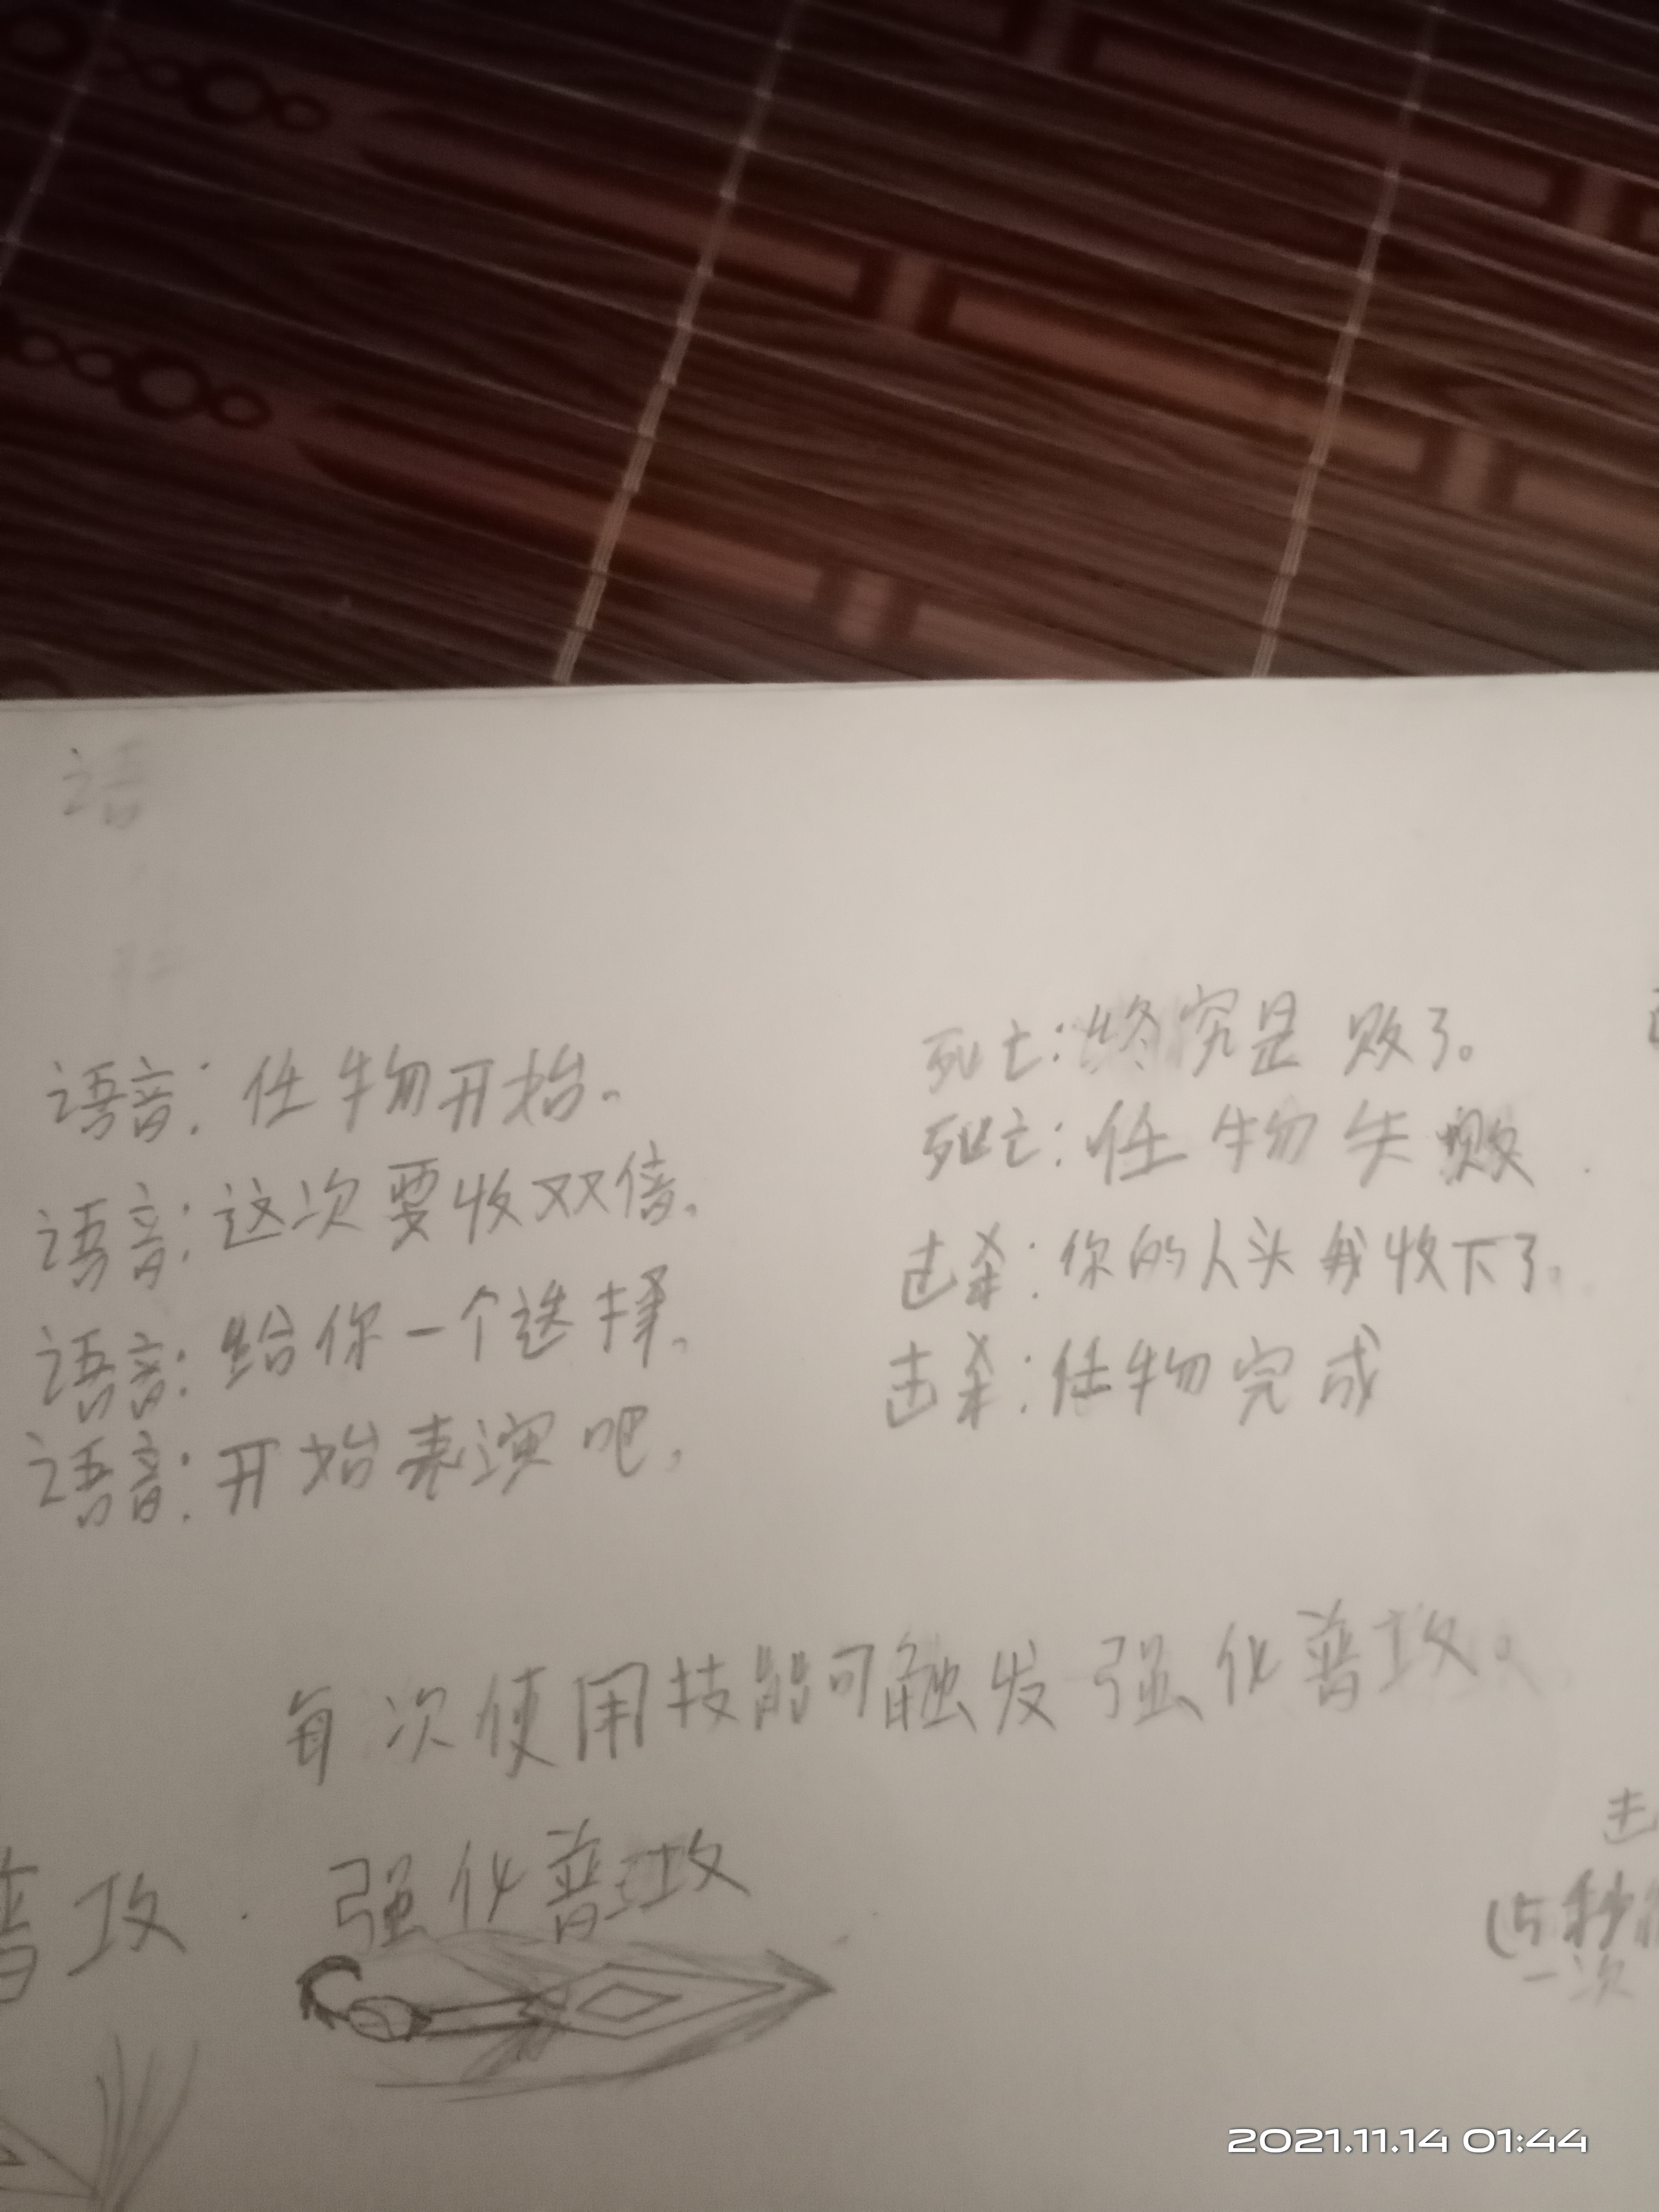 语
语音:任物开始。
语音:这次要收双倍。
语音:给你一个选择。
语音:开始表演吧。
死亡:终究是败了。
死亡:任物失败.
击杀:你的人头我收下了。
击杀:任物完成
每次使用技能可触发强化普攻。
普攻. 强化普攻
(5秒
一次
2021.11.14 01:44